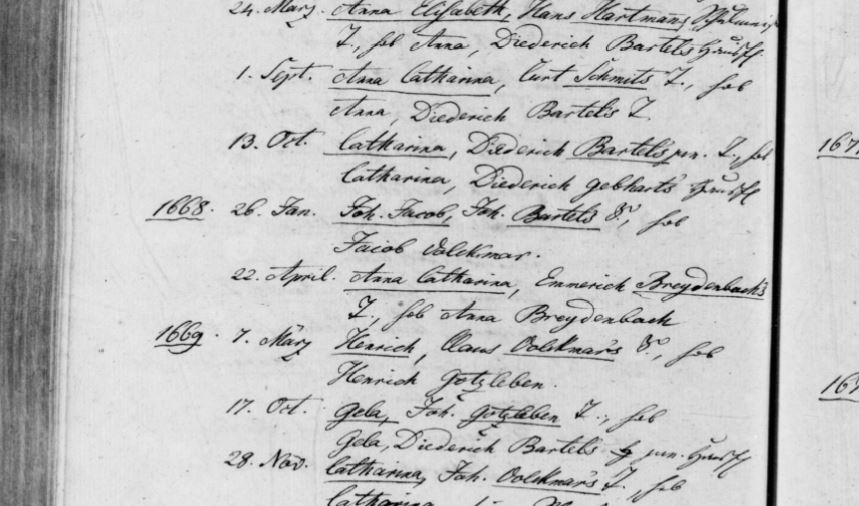 24. März. Anna Elisabeth, Hans Hartmanns
T., heb Anna, Diederich Bartels Hausfr.
1. Sept. Anna Catharina, Curt Schmits T., heb
Anna, Diederich Bartels T.
13. Oct. Catharina, Diederich Bartels jun. T., heb
Catharina, Diederich Gebharts Hausfr
1668. 26. Jan. Joh. Jacob, Joh. Bartels S., heb
Jacob Volckmar.
22. April. Anna Catharina, Emmerich Breydenbach's
T., heb Anna Breydenbach
1669. 7. März Henrich, Claus Volckmar's S., heb
Henrich Gotzleben.
17. Oct. Gela, Joh. Gotzleben T., heb
Gela, Diederich Bartels jun. Hausfr
28. Nov. Catharina, Joh. Volckmar's T., heb
Catharina
167